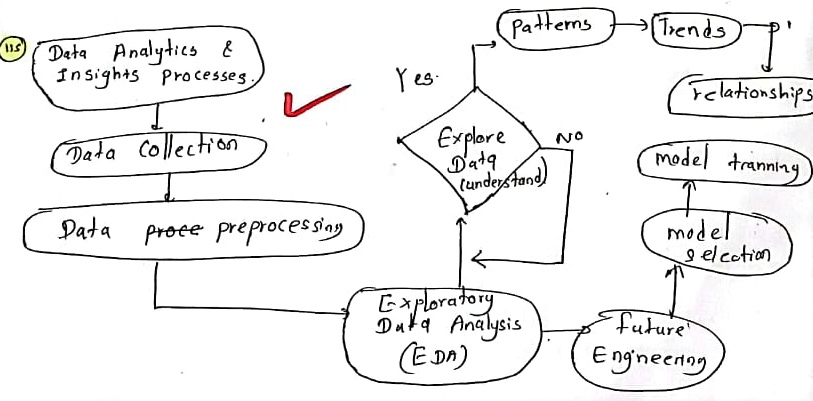 115
Data Analytics &
Insights Processes.
Data Collection
Data proce preprocessing
Exploratory
Data Analysis
(EDA)
Yes.
Explore
Data
(understand)
NO
Patterns
Trends
relationships
future
Engineering
model
selection
model tranning